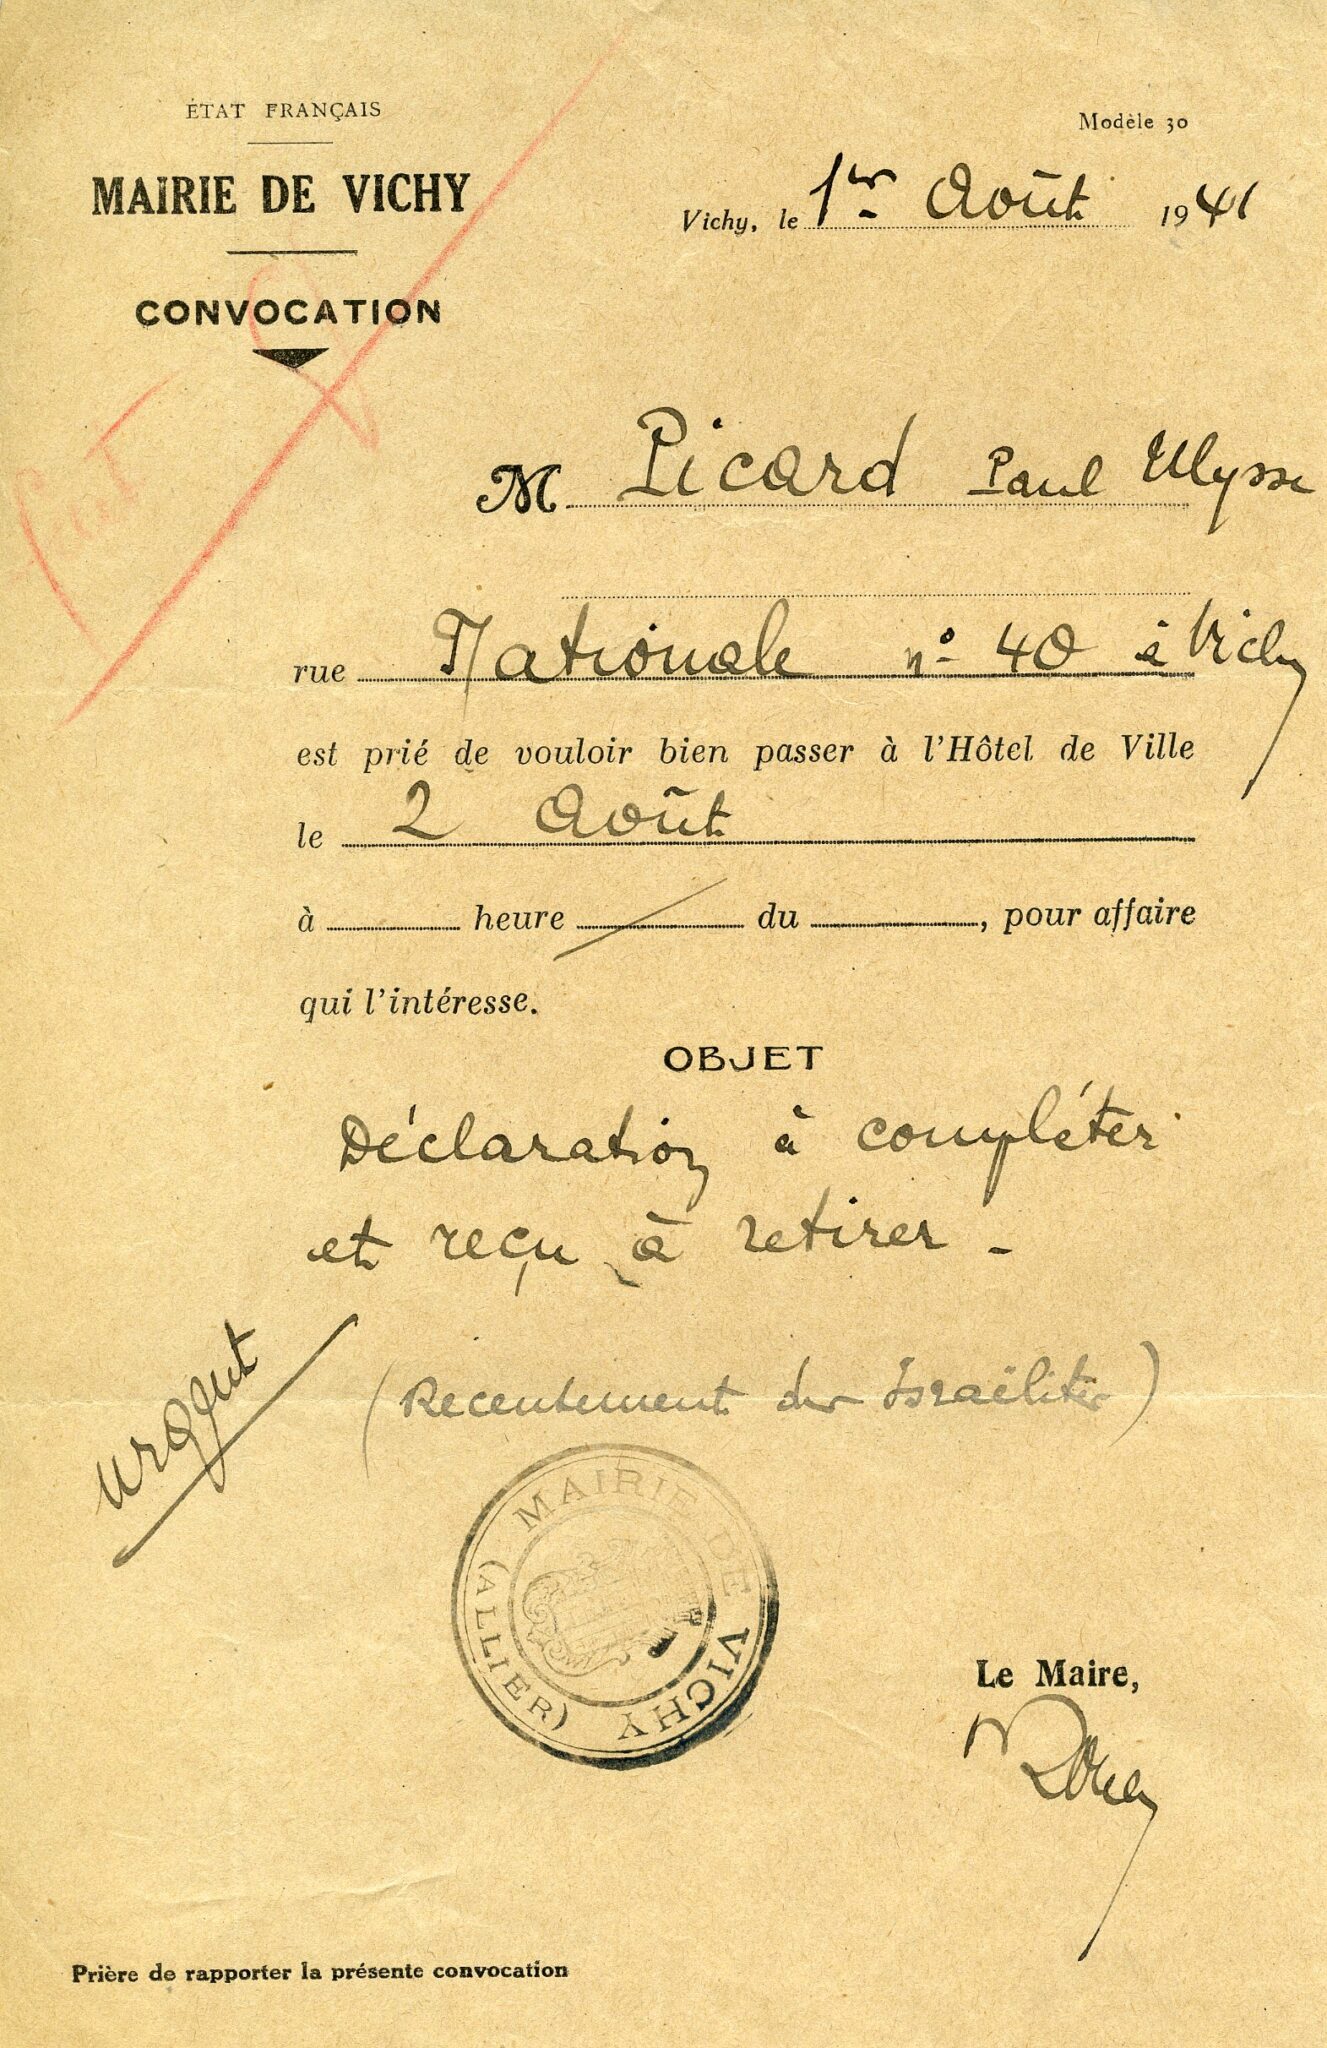 ÉTAT FRANÇAIS
Modèle 30
MAIRIE DE VICHY
Vichy, le 1er Août 1941
CONVOCATION
M Picard Paul Ulysse
rue Nationale n° 40 à Vichy
est prié de vouloir bien passer à l'Hôtel de Ville
le 2 Août
à heure du , pour affaire
qui l'intéresse.
OBJET
Déclaration à compléter
et reçu à retirer -
urgent
(Recensement des Israélites)
MAIRIE DE VICHY
(ALLIER)
Le Maire,
Prière de rapporter la présente convocation